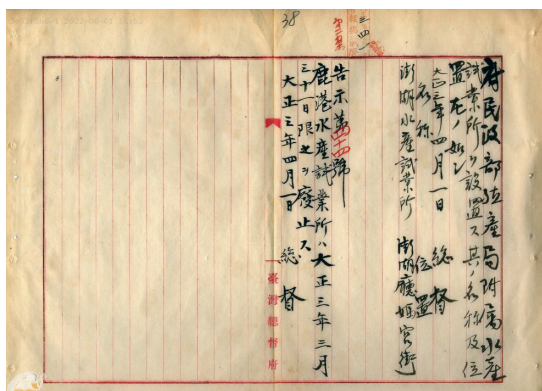 府民政部殖産局附属水産
試業所ヲ設置ス其ノ名称及位
置左ノ如シ
大正三年四月一日　総督
名称　位置
澎湖水産試業所　澎湖廳媽宮街
告示第四十四號
鹿港水産試業所ハ大正三年三月
三十一日限之ヲ廢止ス
大正三年四月一日　総督
臺灣總督府
38